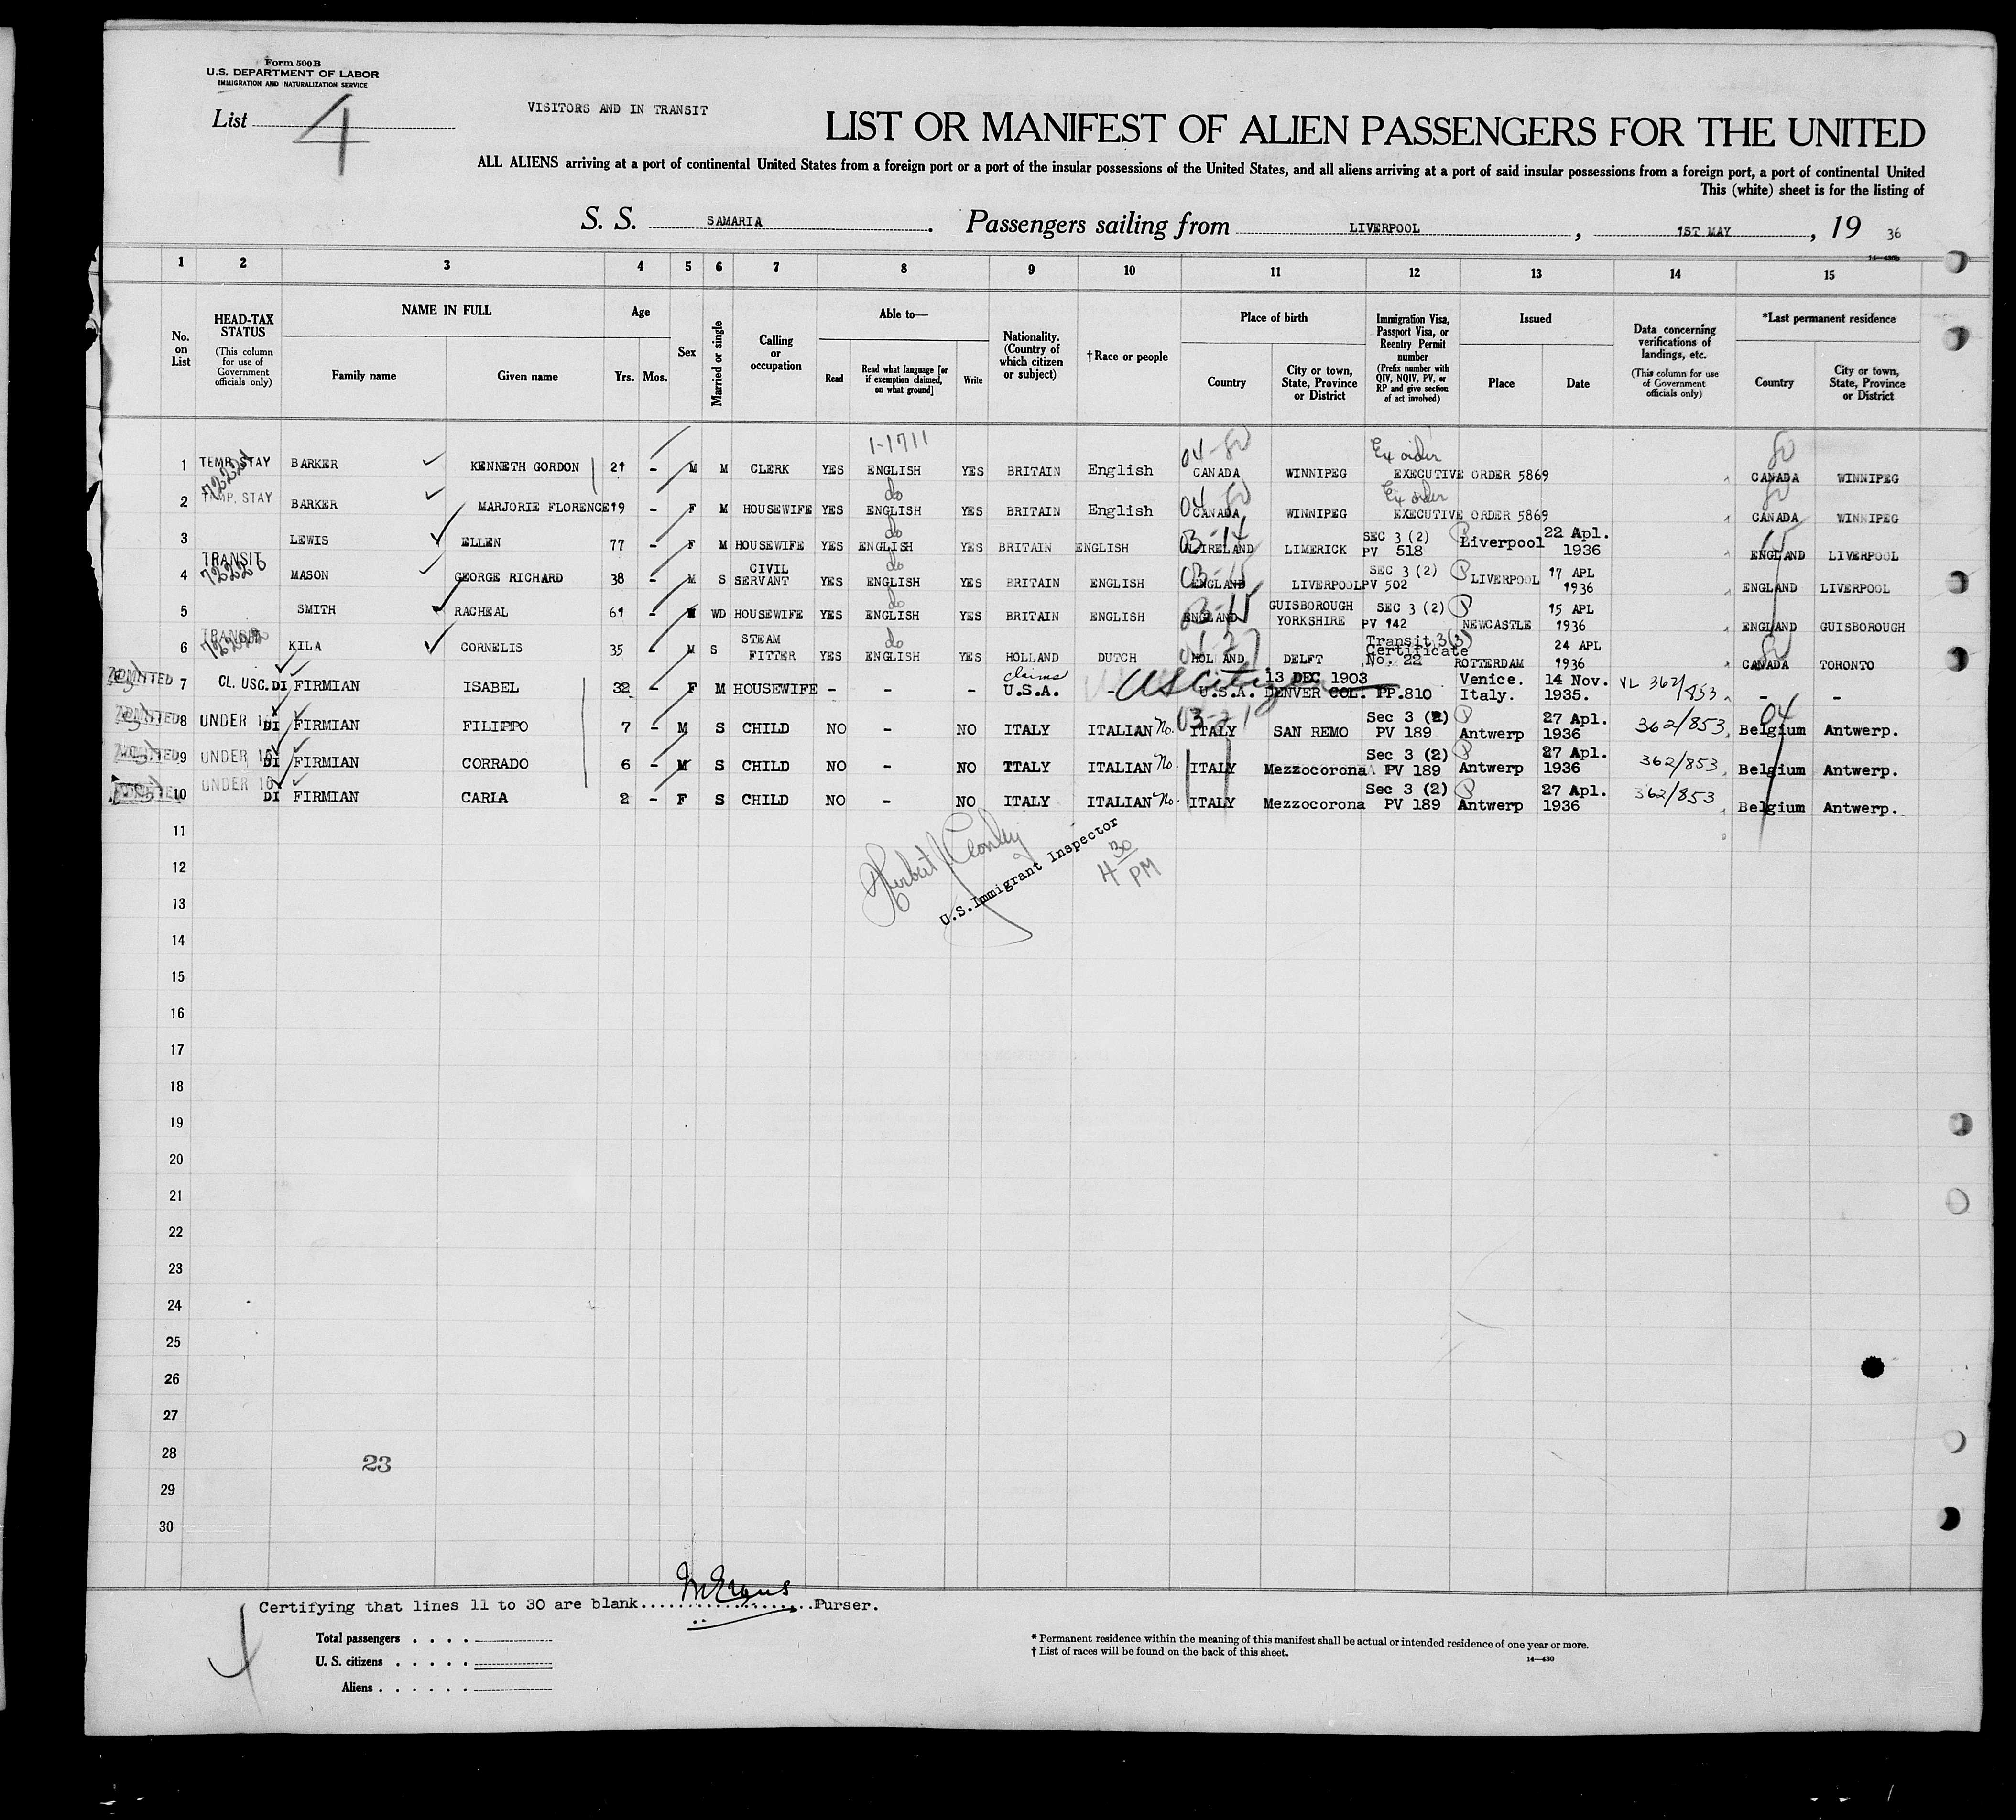 Form 500 B
U.S. DEPARTMENT OF LABOR
IMMIGRATION AND NATURALIZATION SERVICE
List 4
VISITORS AND IN TRANSIT
LIST OR MANIFEST OF ALIEN PASSENGERS FOR THE UNITED
ALL ALIENS arriving at a port of continental United States from a foreign port or a port of the insular possessions of the United States, and all aliens arriving at a port of said insular possessions from a foreign port, a port of continental United
This (white) sheet is for the listing of
S. S. SAMARIA. Passengers sailing from LIVERPOOL, 1ST MAY, 19 36
14—430b
1 2 3 4 5 6 7 8 9 10 11 12 13 14 15
No. on List
HEAD-TAX STATUS
(This column for use of Government officials only)
NAME IN FULL
Family name
Given name
Age
Yrs. Mos.
Sex
Married or single
Calling or occupation
Able to—
Read
Read what language [or if exemption claimed, on what ground]
Write
Nationality. (Country of which citizen or subject)
†Race or people
Place of birth
Country
City or town, State, Province or District
Immigration Visa, Passport Visa, or Reentry Permit number
(Prefix number with QIV, NQIV, PV, or RP and give section of act involved)
Issued
Place
Date
Data concerning verifications of landings, etc.
(This column for use of Government officials only)
*Last permanent residence
Country
City or town, State, Province or District
1-1711 04-80 Ex order 80
1 TEMP. STAY BARKER KENNETH GORDON 21 - M M CLERK YES ENGLISH YES BRITAIN English CANADA WINNIPEG EXECUTIVE ORDER 5869 CANADA WINNIPEG
do 04 80 Ex order 80
2 TEMP. STAY BARKER MARJORIE FLORENCE 19 - F M HOUSEWIFE YES ENGLISH YES BRITAIN English CANADA WINNIPEG EXECUTIVE ORDER 5869 CANADA WINNIPEG
do 03-14
3 LEWIS ELLEN 77 - F M HOUSEWIFE YES ENGLISH YES BRITAIN ENGLISH IRELAND LIMERICK SEC 3 (2) PV 518 Liverpool 22 Apl. 1936 ENGLAND LIVERPOOL
do 03-15
4 TRANSIT MASON GEORGE RICHARD 38 - M S CIVIL SERVANT YES ENGLISH YES BRITAIN ENGLISH ENGLAND LIVERPOOL SEC 3 (2) PV 502 LIVERPOOL 17 APL 1936 ENGLAND LIVERPOOL
do 03-15
5 SMITH RACHEAL 61 - WD HOUSEWIFE YES ENGLISH YES BRITAIN ENGLISH ENGLAND GUISBOROUGH YORKSHIRE SEC 3 (2) PV 142 NEWCASTLE 15 APL 1936 ENGLAND GUISBOROUGH
do 80
6 TRANSIT KILA CORNELIS 35 - M S STEAM FITTER YES ENGLISH YES HOLLAND DUTCH HOLLAND DELFT Transit 3(3) Certificate No. 22 ROTTERDAM 24 APL 1936 CANADA TORONTO
7 ADMITTED CL. USC. DI FIRMIAN ISABEL 32 - F M HOUSEWIFE - - - claims U.S.A. - US Citizen U.S.A. 13 DEC 1903 DENVER COL. PP.810 Venice. Italy. 14 Nov. 1935. VL 362/853 - -
03-21 04
8 ADMITTED UNDER 16 DI FIRMIAN FILIPPO 7 - M S CHILD NO - NO ITALY ITALIAN No. ITALY SAN REMO Sec 3 (2) PV 189 Antwerp 27 Apl. 1936 362/853 Belgium Antwerp.
9 ADMITTED UNDER 16 DI FIRMIAN CORRADO 6 - M S CHILD NO - NO ITALY ITALIAN No. ITALY Mezzocorona Sec 3 (2) PV 189 Antwerp 27 Apl. 1936 362/853 Belgium Antwerp.
10 UNDER 16 DI FIRMIAN CARLA 2 - F S CHILD NO - NO ITALY ITALIAN No. ITALY Mezzocorona Sec 3 (2) PV 189 Antwerp 27 Apl. 1936 362/853 Belgium Antwerp.
11
12
U.S. Immigrant Inspector
4 30 PM
13
14
15
16
17
18
19
20
21
22
23
24
25
26
27
28
23
29
30
Certifying that lines 11 to 30 are blank....................Purser.
Total passengers . . . .
U. S. citizens . . . . .
Aliens . . . . . .
* Permanent residence within the meaning of this manifest shall be actual or intended residence of one year or more.
† List of races will be found on the back of this sheet.
14—430